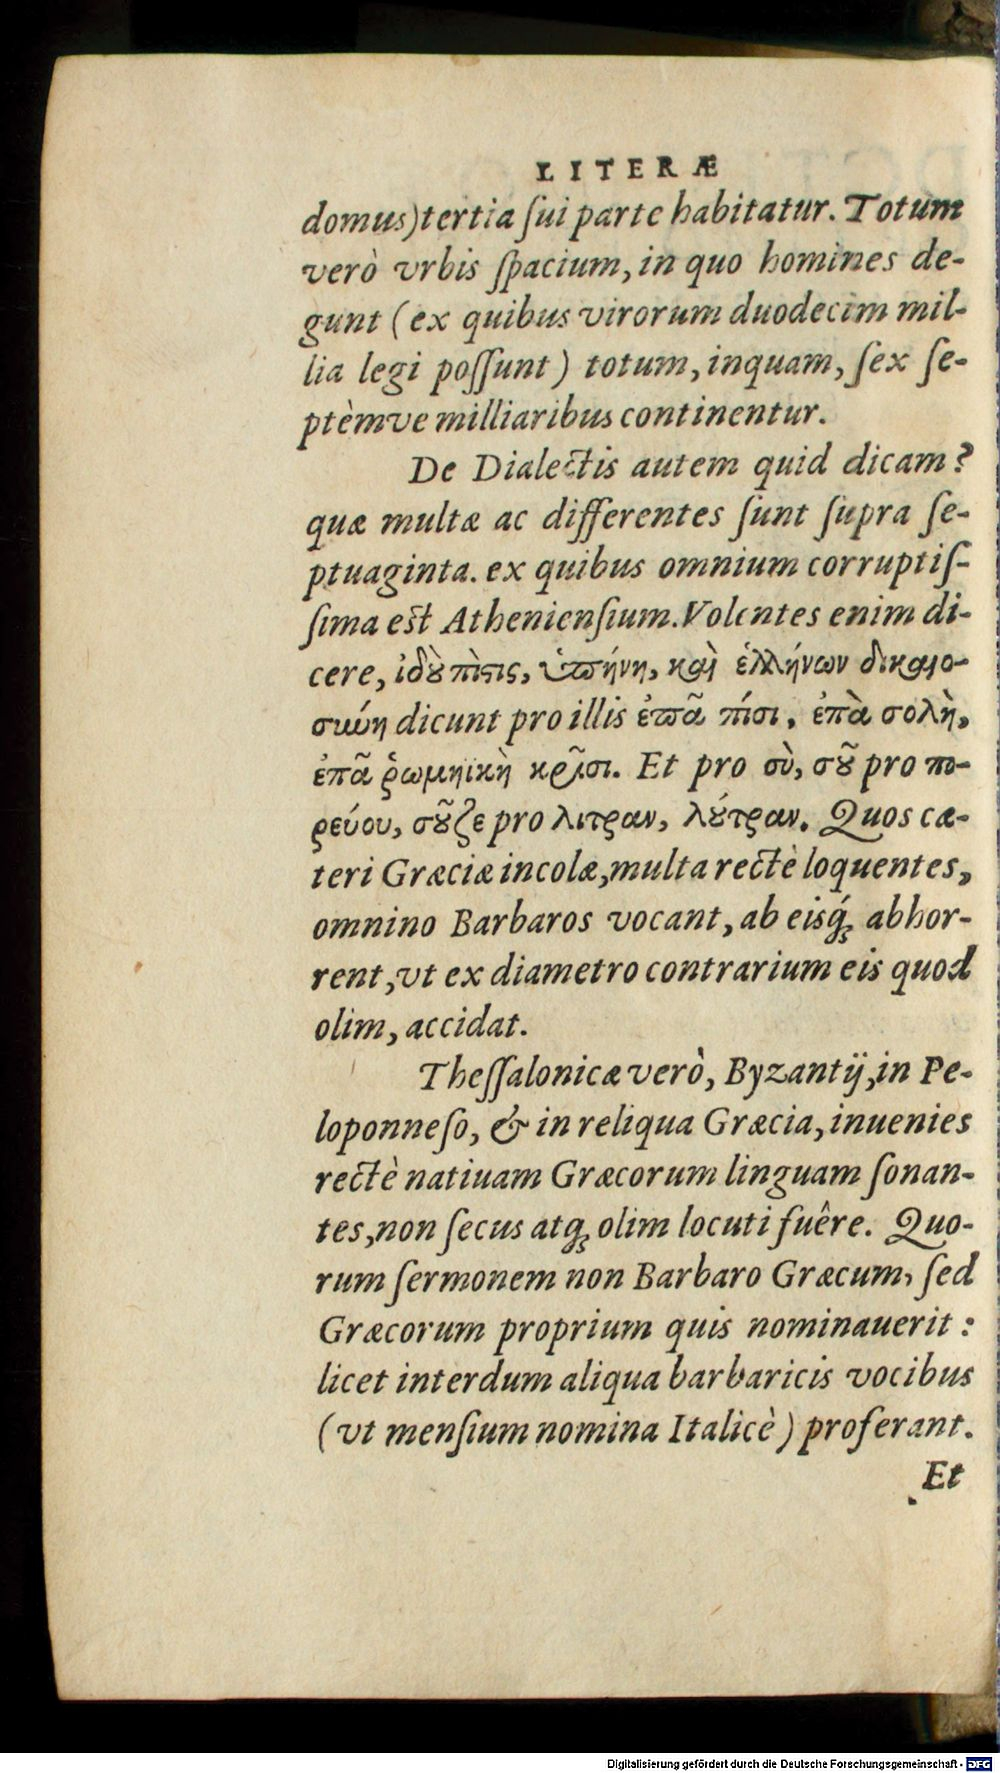 LITERÆ
domus)tertia ſui parte habitatur. Totum
verò vrbis ſpacium, in quo homines de-
gunt (ex quibus virorum duodecim mil-
lia legi poſſunt) totum, inquam, ſex ſe-
ptèmve milliaribus continentur.
De Dialectis autem quid dicam?
quæ multæ ac differentes ſunt ſupra ſe-
ptuaginta. ex quibus omnium corruptiſ-
ſima est Athenienſium. Volentes enim di-
cere, ἰδοὺ πὶϛις, ὑπήνη, καὶ ἑλλήνων δικαιο-
σιώη dicunt pro illis ἐπᾶ πίσι, ἐπὰ σολὴ,
ἐπᾶ ῥωμηϊκὴ κρῖσι. Et pro σὺ, σοῦ pro πο-
ρεύου, σοῦζε pro λιτραν, λούτραν. Quos cæ-
teri Græciæ incolæ, multa rectè loquentes,
omnino Barbaros vocant, ab eisq́ꝫ abhor-
rent, vt ex diametro contrarium eis quod
olim, accidat.
Theſſalonicæ verò, Byzantij, in Pe-
loponneſo, & in reliqua Græcia, inuenies
rectè natiuam Græcorum linguam ſonan-
tes, non ſecus atqꝫ olim locuti fuêre. Quo-
rum ſermonem non Barbaro Græcum, ſed
Græcorum proprium quis nominauerit:
licet interdum aliqua barbaricis vocibus
(vt menſium nomina Italicè) proferant.
Et
Digitalisierung gefördert durch die Deutsche Forschungsgemeinschaft - DFG